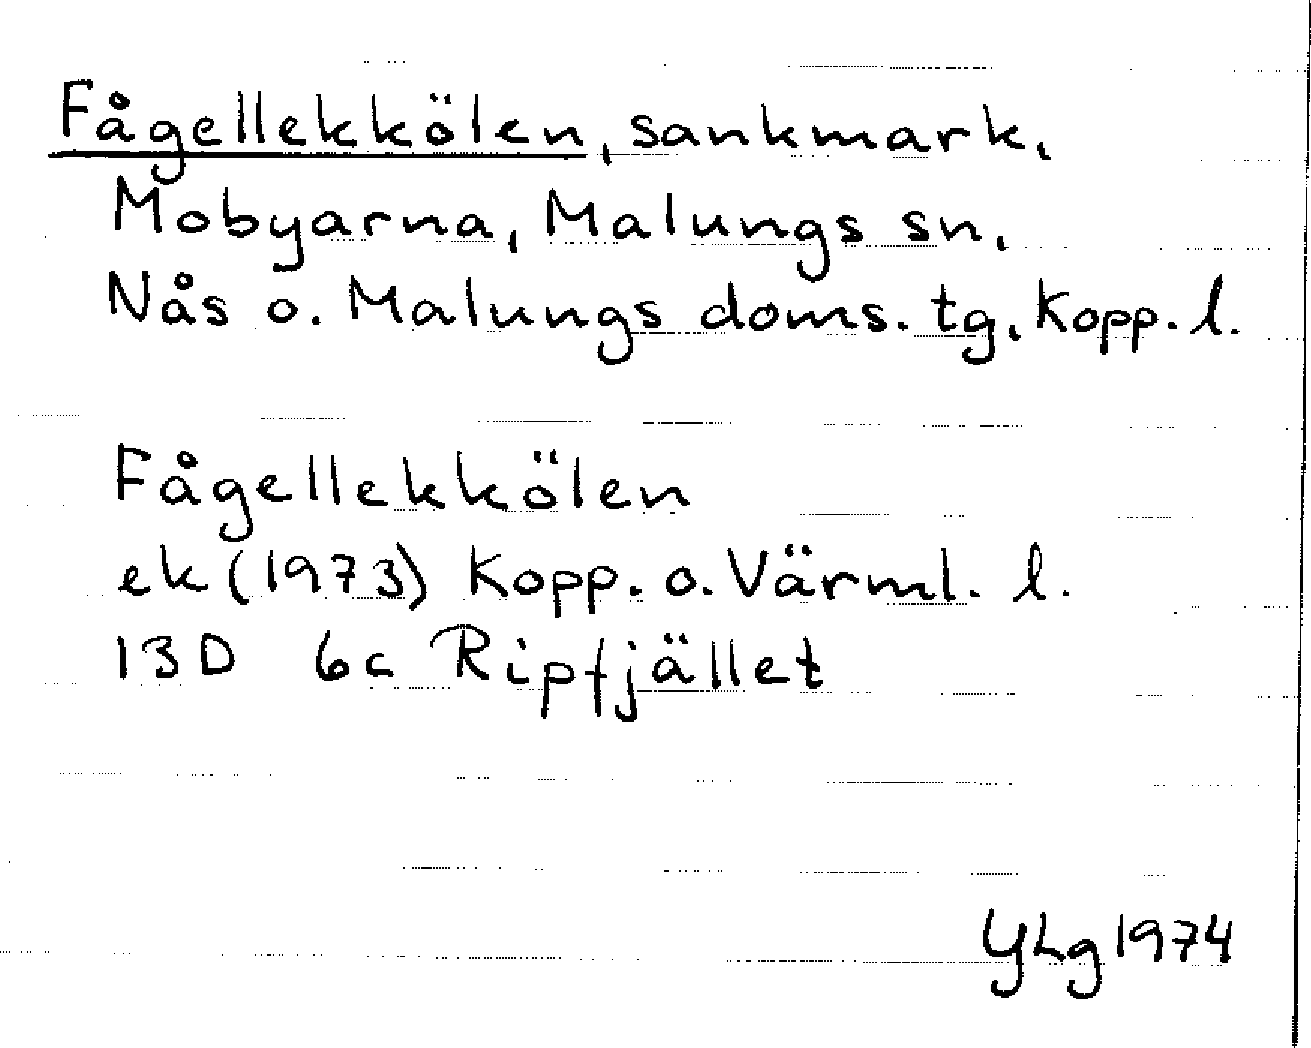 Fågellekkölen, sankmark,
Mobyarna, Malungs sn,
Nås o. Malungs doms. tg, Kopp. l.
Fågellekkölen
ek (1973) Kopp. o. Värml. l.
13D 6c Ripfjället
YLg 1974